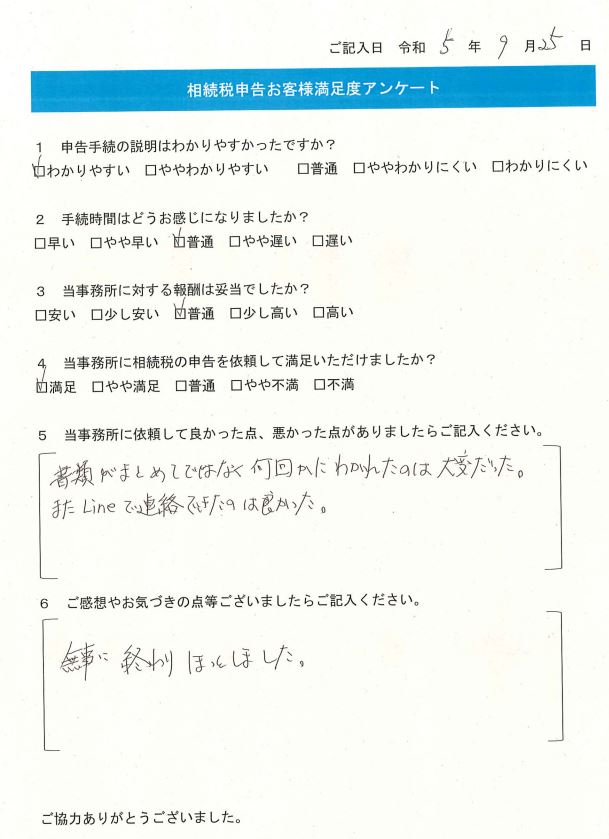 ご記入日 令和 5 年 9 月 25 日
相続税申告お客様満足度アンケート
1 申告手続の説明はわかりやすかったですか？
☑わかりやすい □ややわかりやすい □普通 □ややわかりにくい □わかりにくい
2 手続時間はどうお感じになりましたか？
□早い □やや早い ☑普通 □やや遅い □遅い
3 当事務所に対する報酬は妥当でしたか？
□安い □少し安い ☑普通 □少し高い □高い
4 当事務所に相続税の申告を依頼して満足いただけましたか？
☑満足 □やや満足 □普通 □やや不満 □不満
5 当事務所に依頼して良かった点、悪かった点がありましたらご記入ください。
書類がまとめてではなく何回かにわかれたのは大変だった。
また Line で連絡できたのは良かった。
6 ご感想やお気づきの点等ございましたらご記入ください。
無事に終わりほっとしました。
ご協力ありがとうございました。